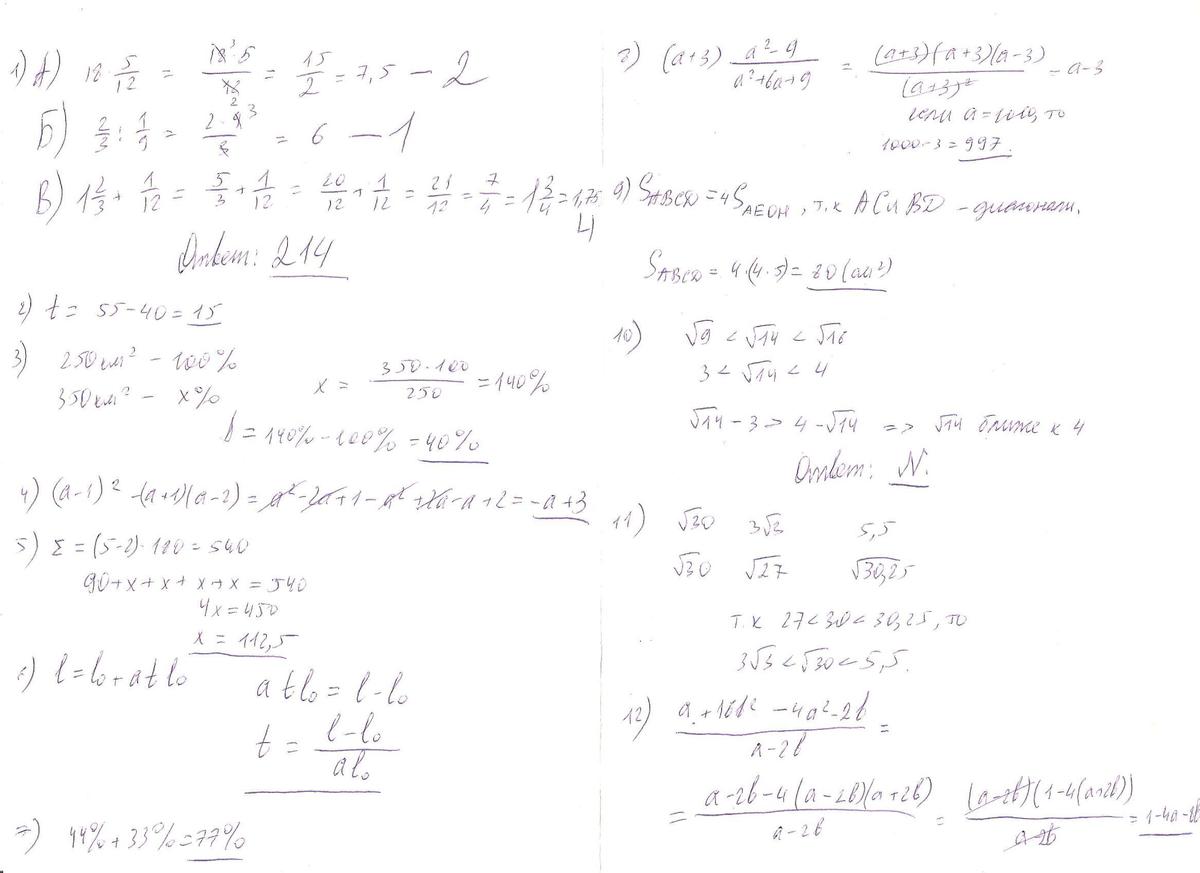 1) А) 18 · 5/12 = 18³·5/12₂ = 15/2 = 7,5 – 2
Б) 2/3 : 1/9 = 2·9³/3 = 6 – 1
В) 1 2/3 + 1/12 = 5/3 + 1/12 = 20/12 + 1/12 = 21/12 = 7/4 = 1 3/4 = 1,75 – 4
Ответ: 214
2) t = 55-40 = 15
3) 250 км² – 100%
350 км² – x%
x = 350·100/250 = 140%
= 140% – 100% = 40%
4) (a-1)² -(a+1)(a-2) = a²-2a+1-a²+2a-a+2 = -a+3
5) Σ = (5-2)·180 = 540
90+x+x+x+x = 540
4x = 450
x = 112,5
6) l = l₀+atl₀
atl₀ = l-l₀
t = l-l₀/al₀
7) 44%+33% = 77%
(a+3) a²-9/a²+6a+9 = (a+3)(a+3)(a-3)/(a+3)² = a-3
если a=1000, то
1000-3 = 997.
9) S ABCD = 4S AEOH, т.к AC и BD – диагонали.
S ABCD = 4·(4·5) = 80 (см²)
10) √9 < √14 < √16
3 < √14 < 4
√14 - 3 > 4 - √14 => √14 ближе к 4
Ответ: N.
11) √30 3√3 5,5
√30 √27 √30,25
т.к 27<30<30,25, то
3√3 < √30 < 5,5.
12) a+16b²-4a²-2b/a-2b =
= a-2b-4(a-2b)(a+2b)/a-2b = (a-2b)(1-4(a+2b))/a-2b = 1-4a-8b